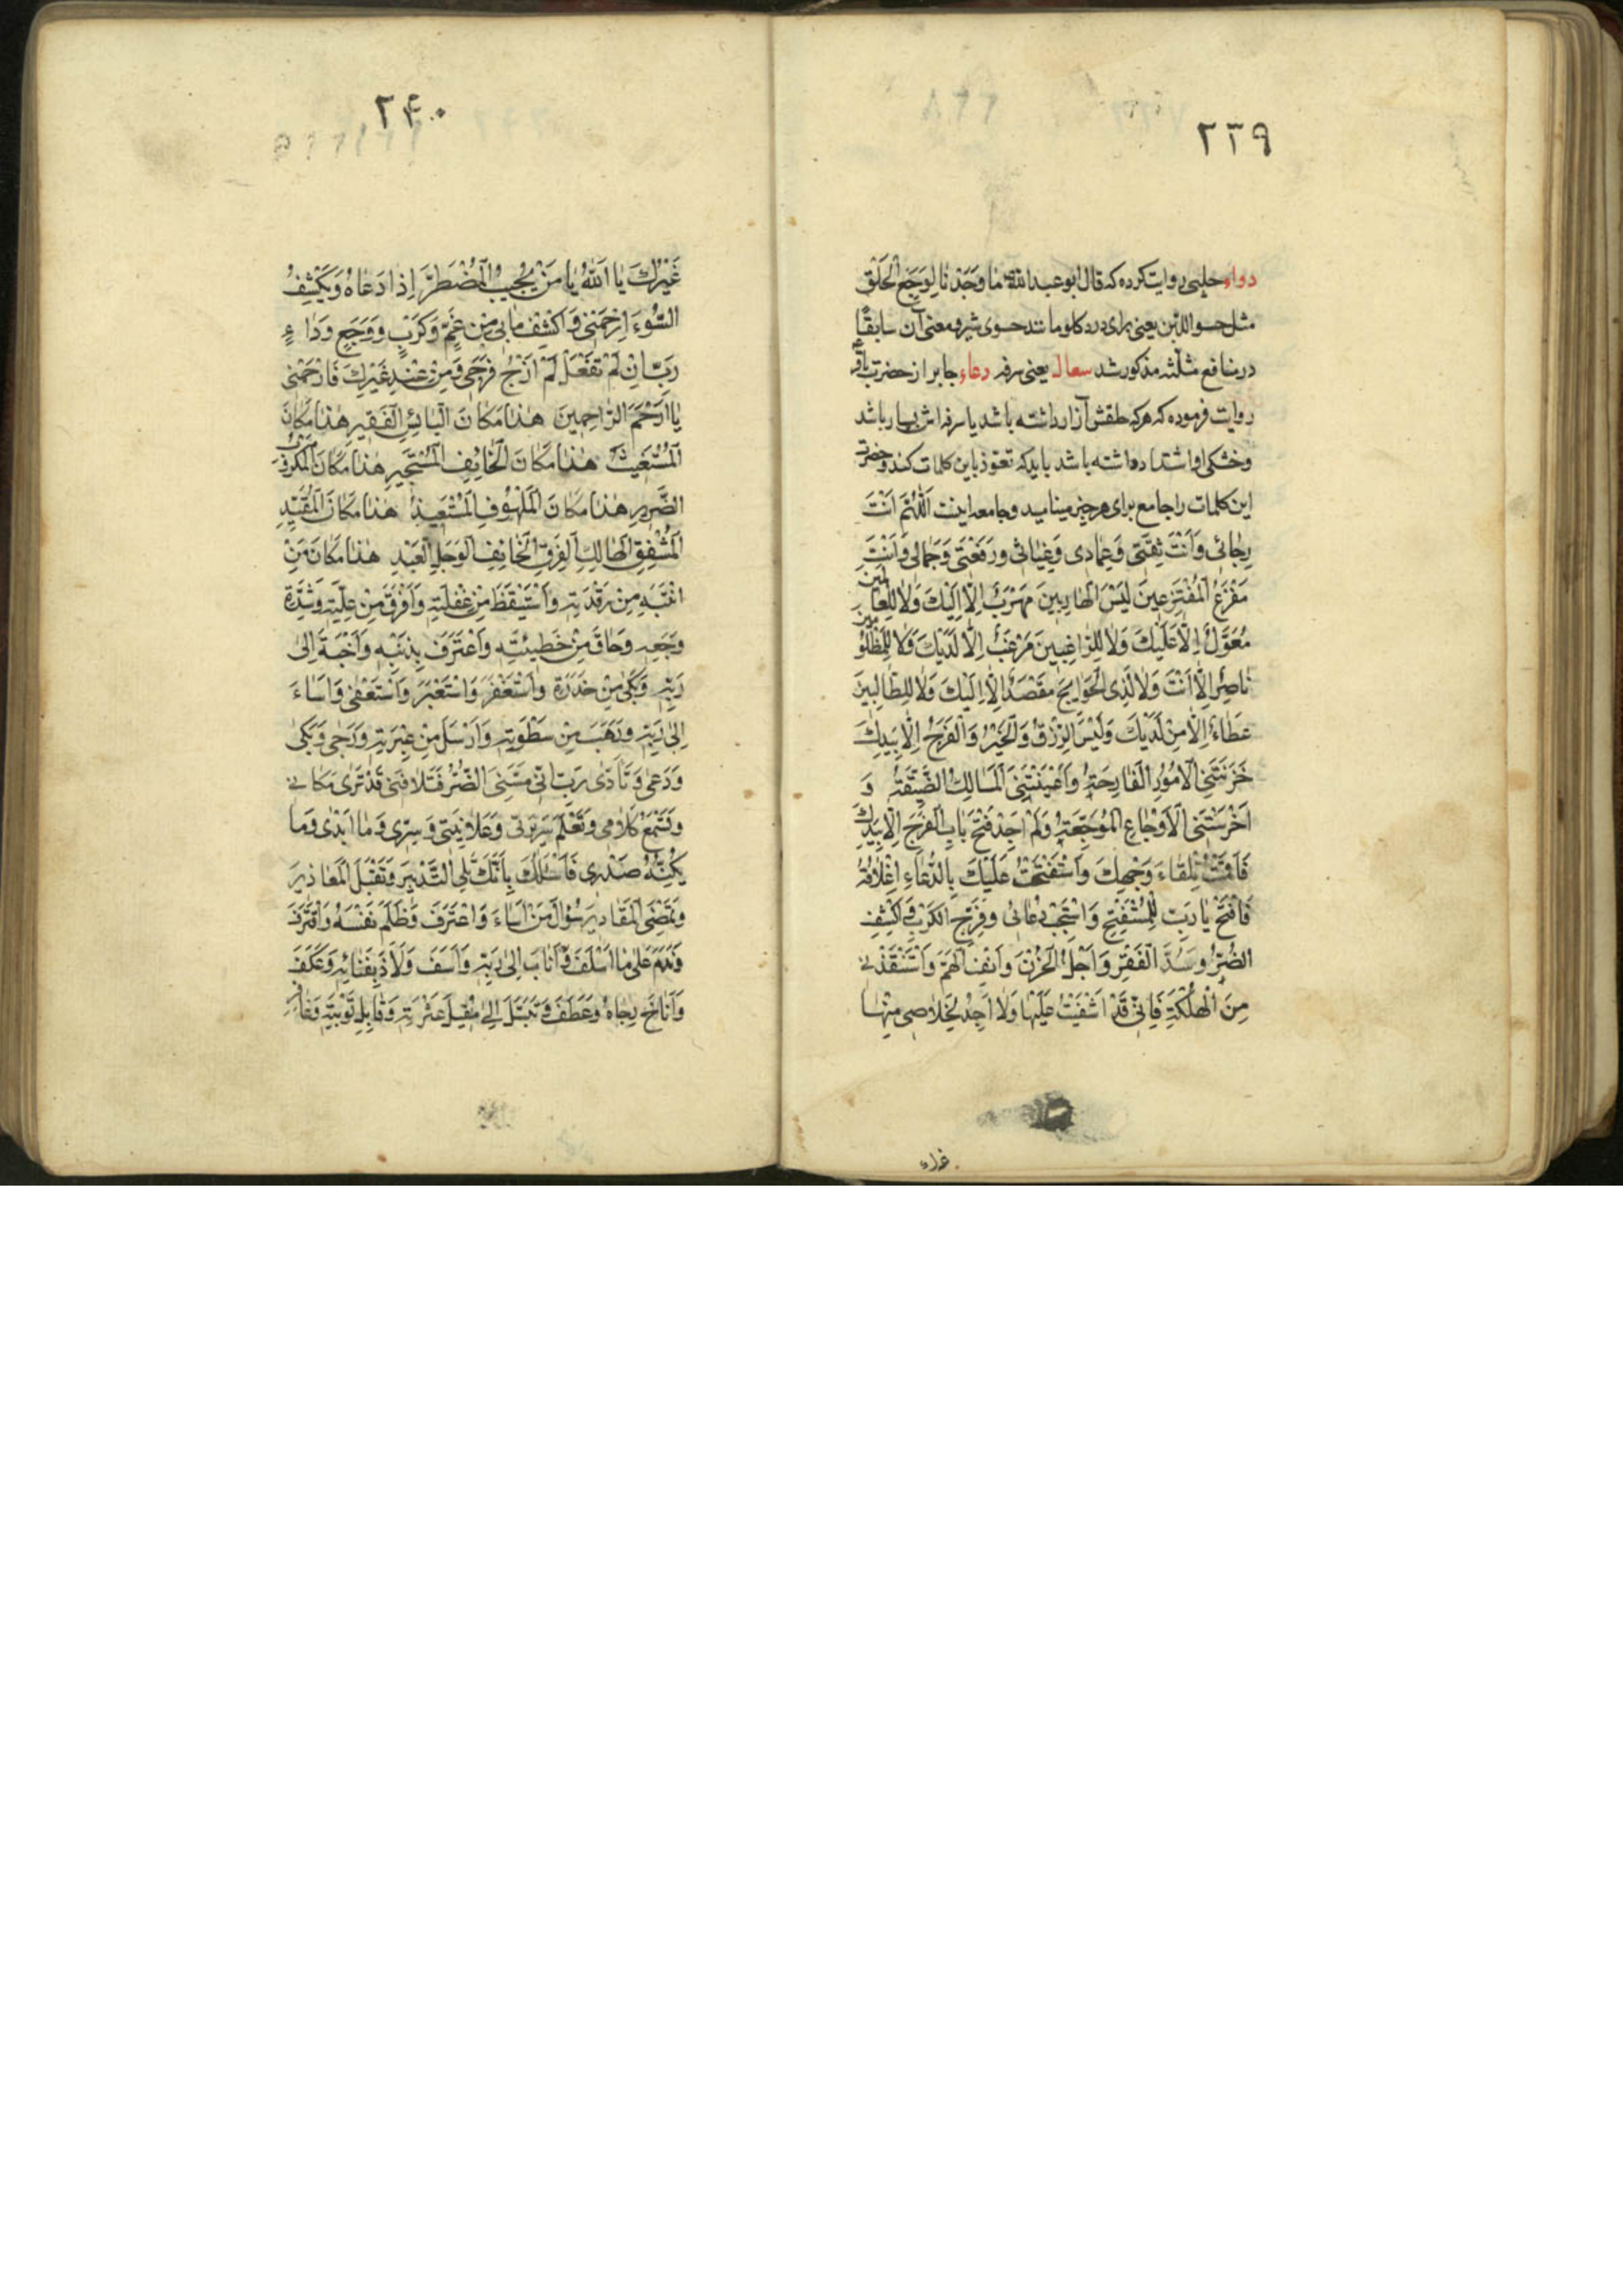 ٢٣٩
دواء حلبی روایت کرده که قال ابو عبدالله ما وَجَدْنا لِوَجَعِ الْحَلْقِ
مثل حسو اللبن یعنی برای درد کلو مانند حسوی شیر و معنی آن سابقًا
در منافع مثلثه مذکور شد سعال یعنی سرفه دعاء جابر از حضرت باقر
روایت فرموده که هرکه حلقش آزار داشته باشد یا سرفه اش بسیار باشد
وخشکی او اشتداد داشته باشد باید که تعوذ باین کلمات کند و حضرت
این کلمات را جامع برای هر چیز مینامید و جامعه اینست اَللّٰهُمَّ اَنْتَ
رَجائی وَاَنْتَ ثِقَتی وَعِمادی وَغِیاثی وَرِفْعَتی وَجَمالی وَاَنْتَ
مَفْزَعُ الْمُفْتَزِعینَ لَیْسَ لِلْهارِبینَ مَهْرَبٌ اِلّا اِلَیْكَ وَلا لِلْعالَمینَ
مُعَوَّلٌ اِلّا عَلَیْكَ وَلا لِلرّاغِبینَ مَرْغَبٌ اِلّا لَدَیْكَ وَلا لِلْمَظْلُومینَ
ناصِرٌ اِلّا اَنْتَ وَلا لِذِی الْحَوائِجِ مَقْصَدٌ اِلّا اِلَیْكَ وَلا لِلطّالِبینَ
عَطاءٌ اِلّا مِنْ لَدَیْكَ وَلَیْسَ الرِّزْقُ وَالْخَیْرُ وَالْفَرَجُ اِلّا بِیَدِكَ
حَزَنَتْنِی الْاُمُورُ الْفادِحَةُ وَاَعْیَتْنِی الْمَسالِكُ الضَّیِّقَةُ وَ
اَحْرَشَتْنِی الْاَوْجاعُ الْمُوجِعَةُ وَلَمْ اَجِدْ فَتْحَ بابِ الْفَرَجِ اِلّا بِیَدِكَ
فَاَقَمْتُ تِلْقاءَ وَجْهِكَ وَاسْتَفْتَحْتُ عَلَیْكَ بِالدُّعاءِ اِغْلاقَهُ
فَافْتَحْ یا رَبِّ لِلْمُسْتَفْتِحِ وَاسْتَجِبْ دُعائی وَفَرِّجِ الْكَرْبَ وَاكْشِفِ
الضُّرَّ وَسُدَّ الْفَقْرَ وَاَجْلِ الْحُزْنَ وَانْفِ الْهَمَّ وَاسْتَنْقِذْنی
مِنَ الْهَلَكَةِ فَاِنّی قَدْ اَشْفَیْتُ عَلَیْها وَلا اَجِدُ لِخَلاصی مِنْها
٢۴٠
غَیْرَكَ یا اَللهُ یا مَنْ یُجیبُ الْمُضْطَرَّ اِذا دَعاهُ وَیَكْشِفُ
السُّوءَ اِرْحَمْنی وَاكْشِفْ ما بی مِنْ غَمٍّ وَكَرْبٍ وَوَجَعٍ وَداءٍ
رَبِّ اِنْ لَمْ تَفْعَلْ لَمْ اَرْجُ فَرَجی مِنْ عِنْدِ غَیْرِكَ فَارْحَمْنی
یا اَرْحَمَ الرّاحِمینَ هٰذا مَكانَ الْبائِسِ الْفَقیرِ هٰذا مَكانَ
الْمُسْتَغیثِ هٰذا مَكانَ الْخائِفِ الْمُسْتَجیرِ هٰذا مَكانَ الْمَكْرُوبِ
الضَّریرِ هٰذا مَكانَ الْمَلْهُوفِ الْمُسْتَعیذِ هٰذا مَكانَ الْمُقَیَّدِ
الْمُشْفِقِ الْهالِكِ الْفَرِقِ الْخائِفِ الْوَجِلِ الْعَبْدِ هٰذا مَكانَ مَنْ
انْتَبَهَ مِنْ رَقْدَتِهِ وَاسْتَیْقَظَ مِنْ غَفْلَتِهِ وَاَفْرَقَ مِنْ عِلَّتِهِ وَشِدَّةِ
وَجَعِهِ وَخافَ مِنْ خَطیئَتِهِ وَاعْتَرَفَ بِذَنْبِهِ وَاَخْبَتَ اِلى
رَبِّهِ وَبَكى مِنْ حَذَرِهِ وَاسْتَغْفَرَ وَاسْتَعْبَرَ وَاسْتَعْفى وَاَساءَ
اِلى رَبِّهِ وَرَهِبَ مِنْ سَطْوَتِهِ وَاَرْسَلَ مِنْ عَبْرَتِهِ وَرَجى وَبَكى
وَدَعى وَنادى رَبِّ اِنّی مَسَّنِیَ الضُّرُّ فَتَلافَنی قَدْ تَرى مَكانی
وَتَسْمَعُ كَلامی وَتَعْلَمُ سَریرَتی وَعَلانِیَتی وَسِرّی وَما اَبْدی وَما
یَكُنُّهُ صَدْری فَاَسْئَلُكَ بِاَنَّكَ تَلِی التَّدْبیرَ وَتَقْبَلُ الْمَعاذیرَ
وَتَمْضِی الْمَقادیرَ سُؤالَ مَنْ اَساءَ وَاعْتَرَفَ وَظَلَمَ نَفْسَهُ وَاقْتَرَفَ
وَنَدِمَ عَلى ما اَسْلَفَ وَاَنابَ اِلى رَبِّهِ وَاَسَفَ وَلاذَ بِفَنائِهِ وَعَكَفَ
وَاَناخَ رَجاهُ وَعَطَفَ وَتَبَتَّلَ اِلى مُقیلِ عَثْرَتِهِ وَقابِلِ تَوْبَتِهِ